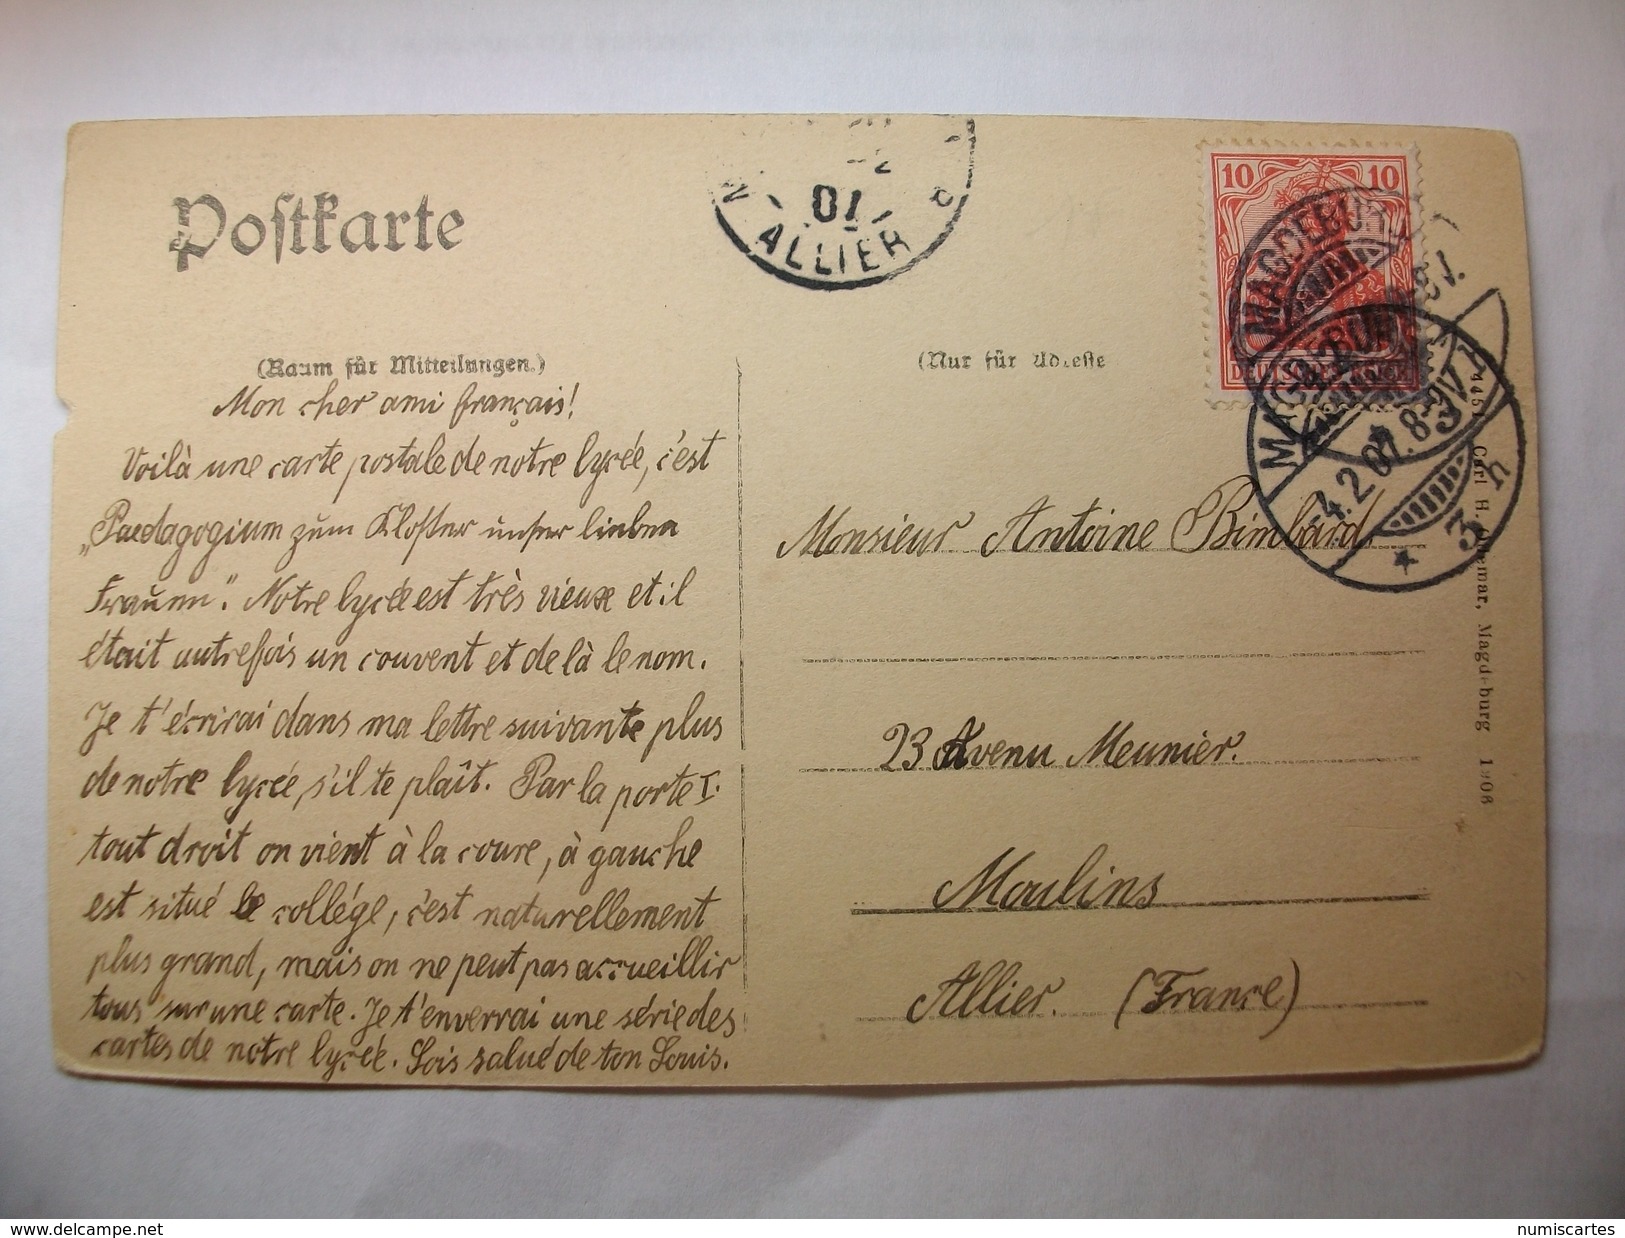 Postkarte
(Raum für Mitteilungen.)
Mon cher ami français!
Voilà une carte postale de notre lycée, c'est
„Paedagogium zum Kloster unser lieben
Frauen". Notre lycée est très vieux et il
était autrefois un couvent et de là le nom.
Je t'écrirai dans ma lettre suivante plus
de notre lycée, s'il te plaît. Par la porte I.
tout droit on vient à la coure, à gauche
est situé le collége, c'est naturellement
plus grand, mais on ne peut pas accueillir
tous sur une carte. Je t'enverrai une série des
cartes de notre lycée. Sois salué de ton Louis.
01
ALLIER
(Nur für Adresse
10 10
DEUTSCHES REICH
MAGDEBURG
MAGDEBURG
4.2.07. 8-9V.
* 3 n
Monsieur Antoine Bimbard.
23 Avenu Meunier.
Moulins
Allier. (France)
Carl H. Odemar, Magdeburg 1906
www.delcampe.net
numiscartes